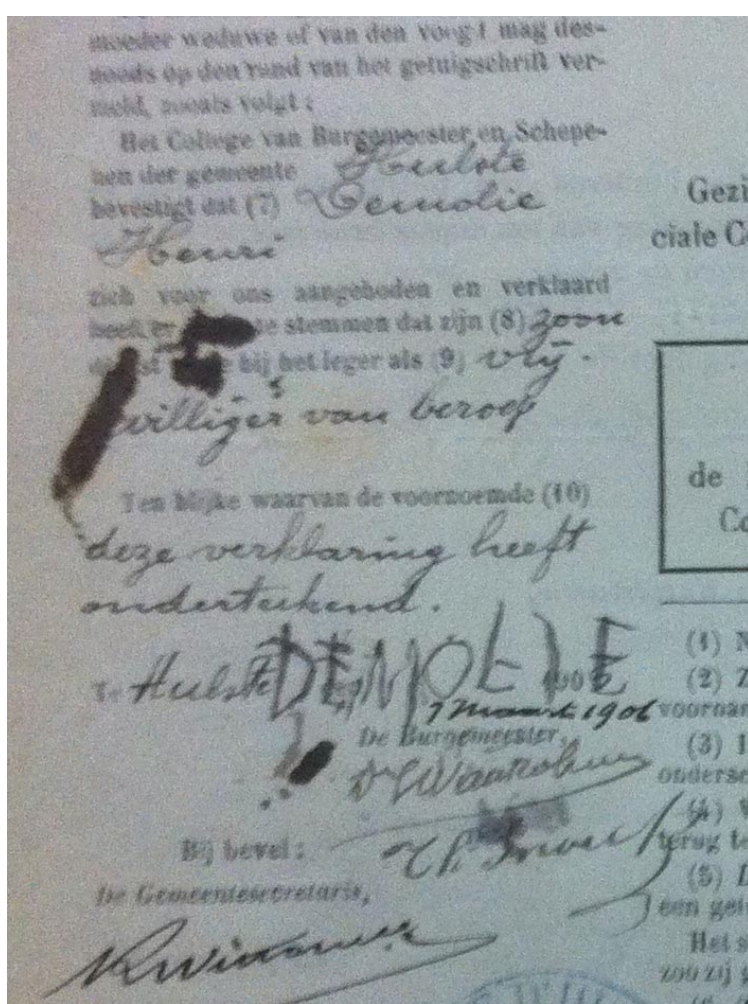 moeder weduwe of van den voogt mag des-
noods op den rand van het getuigschrift ver-
meld, zooals volgt :
Het College van Burgemeester en Schepe-
nen der gemeente Hulste
bevestigt dat (7) Demolie
Henri
zich voor ons aangeboden en verklaard
heeft stemmen dat zijn (8) zoon
bij het leger als (9) vrij-
williger van beroep
Ten blijke waarvan de voornoemde (10)
deze verklaring heeft
onderteekend.
Te Hulste DEMOLIE
7 Maart 1906
De Burgemeester,
Bij bevel :
De Gemeentesecretaris,
Gezi
ciale C
de
Co
(1) N
(2) Z
voornan
(3) I
onderse
(4) V
terug te
(5) D
een get
Het s
zoo zij